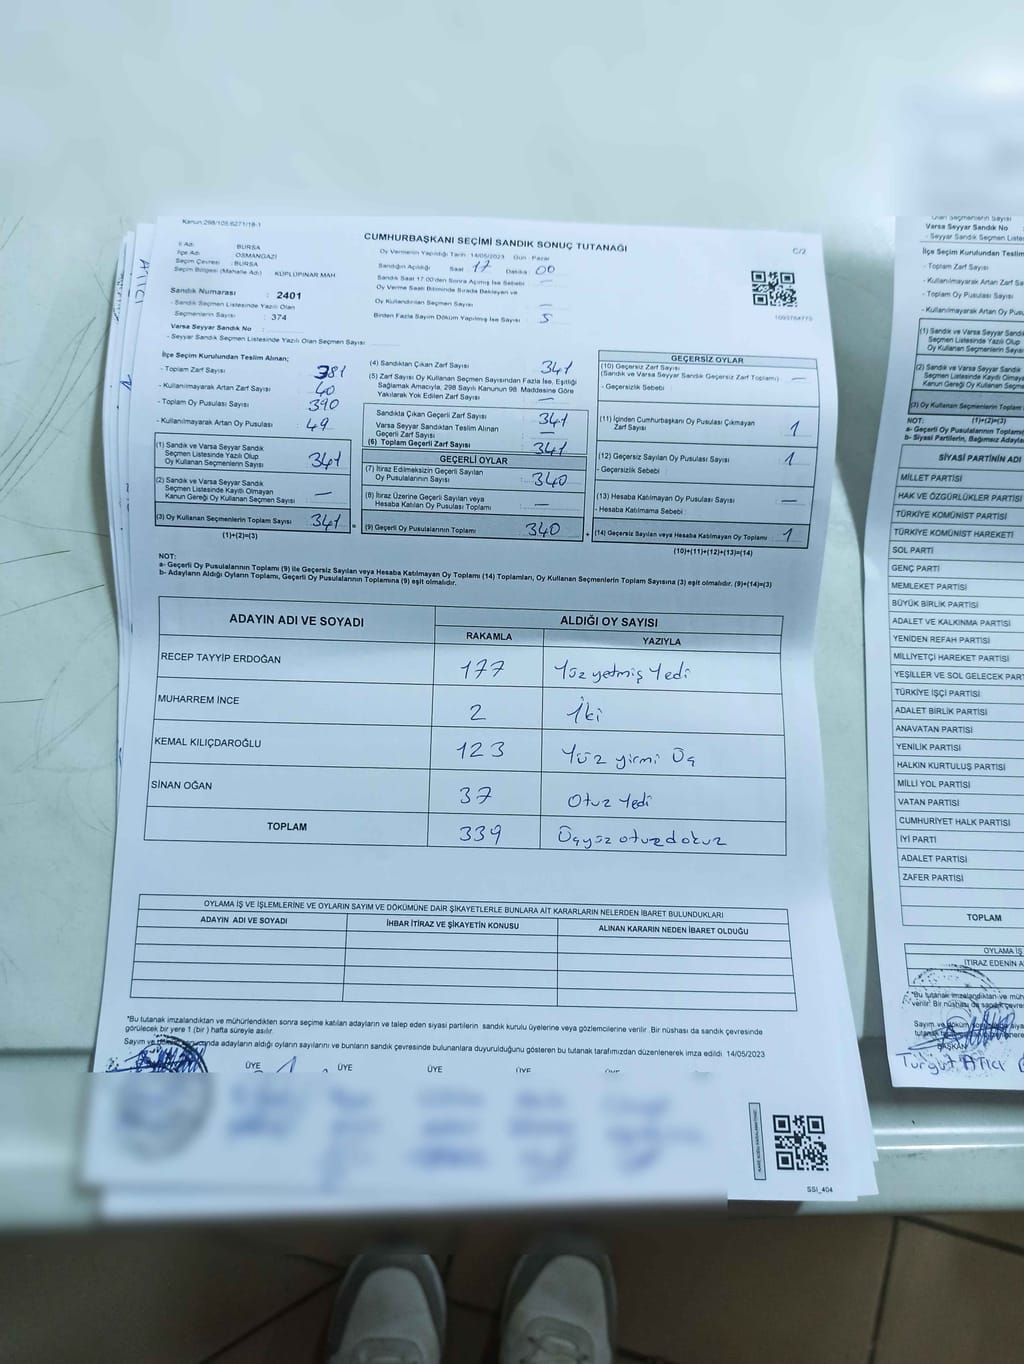 Kanun:298/105;6271/18-1
CUMHURBAŞKANI SEÇİMİ SANDIK SONUÇ TUTANAĞI
C/2
İl Adı : BURSA
İlçe Adı : OSMANGAZİ
Seçim Çevresi : BURSA
Seçim Bölgesi (Mahalle Adı) : KÜPLÜPINAR MAH
Sandık Numarası : 2401
- Sandık Seçmen Listesinde Yazılı Olan
Seçmenlerin Sayısı : 374
Varsa Seyyar Sandık No :
- Seyyar Sandık Seçmen Listesinde Yazılı Olan Seçmen Sayısı :
Oy Vermenin Yapıldığı Tarih: 14/05/2023 Gün: Pazar
Sandığın Açıldığı Saat 17 Dakika : 00
Sandık Saat 17.00'den Sonra Açılmış İse Sebebi : —
Oy Verme Saati Bitiminde Sırada Bekleyen ve
Oy Kullandırılan Seçmen Sayısı : —
Birden Fazla Sayım Döküm Yapılmış İse Sayısı : 5
İlçe Seçim Kurulundan Teslim Alınan;
- Toplam Zarf Sayısı : 381
- Kullanılmayarak Artan Zarf Sayısı : 40
- Toplam Oy Pusulası Sayısı : 390
- Kullanılmayarak Artan Oy Pusulası : 49
(1) Sandık ve Varsa Seyyar Sandık
Seçmen Listesinde Yazılı Olup
Oy Kullanan Seçmenlerin Sayısı : 341
(2) Sandık ve Varsa Seyyar Sandık
Seçmen Listesinde Kayıtlı Olmayan
Kanun Gereği Oy Kullanan Seçmen Sayısı : —
(3) Oy Kullanan Seçmenlerin Toplam Sayısı : 341
(1)+(2)=(3)
(4) Sandıktan Çıkan Zarf Sayısı : 341
(5) Zarf Sayısı Oy Kullanan Seçmen Sayısından Fazla İse, Eşitliği
Sağlamak Amacıyla, 298 Sayılı Kanunun 98. Maddesine Göre
Yakılarak Yok Edilen Zarf Sayısı : —
Sandıkla Çıkan Geçerli Zarf Sayısı : 341
Varsa Seyyar Sandıktan Teslim Alınan
Geçerli Zarf Sayısı : —
(6) Toplam Geçerli Zarf Sayısı : 341
GEÇERLİ OYLAR
(7) İtiraz Edilmeksizin Geçerli Sayılan
Oy Pusulalarının Sayısı : 340
(8) İtiraz Üzerine Geçerli Sayılan veya
Hesaba Katılan Oy Pusulası Toplamı : —
= (9) Geçerli Oy Pusulalarının Toplamı : 340
GEÇERSİZ OYLAR
(10) Geçersiz Zarf Sayısı
(Sandık ve Varsa Seyyar Sandık Geçersiz Zarf Toplamı) : —
- Geçersizlik Sebebi :
(11) İçinden Cumhurbaşkanı Oy Pusulası Çıkmayan
Zarf Sayısı : 1
(12) Geçersiz Sayılan Oy Pusulası Sayısı : 1
- Geçersizlik Sebebi :
(13) Hesaba Katılmayan Oy Pusulası Sayısı : —
- Hesaba Katılmama Sebebi :
+ (14) Geçersiz Sayılan veya Hesaba Katılmayan Oy Toplamı : 1
(10)+(11)+(12)+(13)=(14)
NOT:
a- Geçerli Oy Pusulalarının Toplamı (9) ile Geçersiz Sayılan veya Hesaba Katılmayan Oy Toplamı (14) Toplamları, Oy Kullanan Seçmenlerin Toplam Sayısına (3) eşit olmalıdır. (9)+(14)=(3)
b- Adayların Aldığı Oyların Toplamı, Geçerli Oy Pusulalarının Toplamına (9) eşit olmalıdır.
ADAYIN ADI VE SOYADI ALDIĞI OY SAYISI
RAKAMLA YAZIYLA
RECEP TAYYİP ERDOĞAN 177 Yüz yetmiş Yedi
MUHARREM İNCE 2 İki
KEMAL KILIÇDAROĞLU 123 Yüz yirmi üç
SİNAN OĞAN 37 Otuz Yedi
TOPLAM 339 Üçyüz otuzdokuz
OYLAMA İŞ VE İŞLEMLERİNE VE OYLARIN SAYIM VE DÖKÜMÜNE DAİR ŞİKAYETLERLE BUNLARA AİT KARARLARIN NELERDEN İBARET BULUNDUKLARI
ADAYIN ADI VE SOYADI İHBAR İTİRAZ VE ŞİKAYETİN KONUSU ALINAN KARARIN NEDEN İBARET OLDUĞU
*Bu tutanak imzalandıktan ve mühürlendikten sonra seçime katılan adayların ve talep eden siyasi partilerin sandık kurulu üyelerine veya gözlemcilerine verilir. Bir nüshası da sandık çevresinde
görülecek bir yere 1 (bir) hafta süreyle asılır.
Sayım ve adayların aldığı oyların sayılarını ve bunların sandık çevresinde bulunanlara duyurulduğunu gösteren bu tutanak tarafımızdan düzenlenerek imza edildi. 14/05/2023
ÜYE ÜYE ÜYE ÜYE ÜYE
SSI_404
ATICI
Varsa Seyyar Sandık No
- Seyyar Sandık Seçmen Liste
İlçe Seçim Kurulundan Teslim
- Toplam Zarf Sayısı
- Kullanılmayarak Artan Zarf Sa
- Toplam Oy Pusulası Sayısı
- Kullanılmayarak Artan Oy Pus
(1) Sandık ve Varsa Seyyar Sandı
Seçmen Listesinde Yazılı Olup
Oy Kullanan Seçmenlerin Sayıs
(2) Sandık ve Varsa Seyyar Sandı
Seçmen Listesinde Kayıtlı Olma
Kanun Gereği Oy Kullanan Seçm
(3) Oy Kullanan Seçmenlerin Toplam
(1)+(2)=(3)
NOT:
a- Geçerli Oy Pusulalarının Toplamı
b- Siyasi Partilerin, Bağımsız Adayla
SİYASİ PARTİNİN ADI
MİLLET PARTİSİ
HAK VE ÖZGÜRLÜKLER PARTİSİ
TÜRKİYE KOMÜNİST PARTİSİ
TÜRKİYE KOMÜNİST HAREKETİ
SOL PARTİ
GENÇ PARTİ
MEMLEKET PARTİSİ
BÜYÜK BİRLİK PARTİSİ
ADALET VE KALKINMA PARTİSİ
YENİDEN REFAH PARTİSİ
MİLLİYETÇİ HAREKET PARTİSİ
YEŞİLLER VE SOL GELECEK PART
TÜRKİYE İŞÇİ PARTİSİ
ADALET BİRLİK PARTİSİ
ANAVATAN PARTİSİ
YENİLİK PARTİSİ
HALKIN KURTULUŞ PARTİSİ
MİLLİ YOL PARTİSİ
VATAN PARTİSİ
CUMHURİYET HALK PARTİSİ
İYİ PARTİ
ADALET PARTİSİ
ZAFER PARTİSİ
TOPLAM
OYLAMA İŞ
İTİRAZ EDENİN A
*Bu tutanak imzalandıktan ve müh
verilir. Bir nüshası da sandık çevres
Sayım ve döküm
BAŞKAN
Turgut ATICI